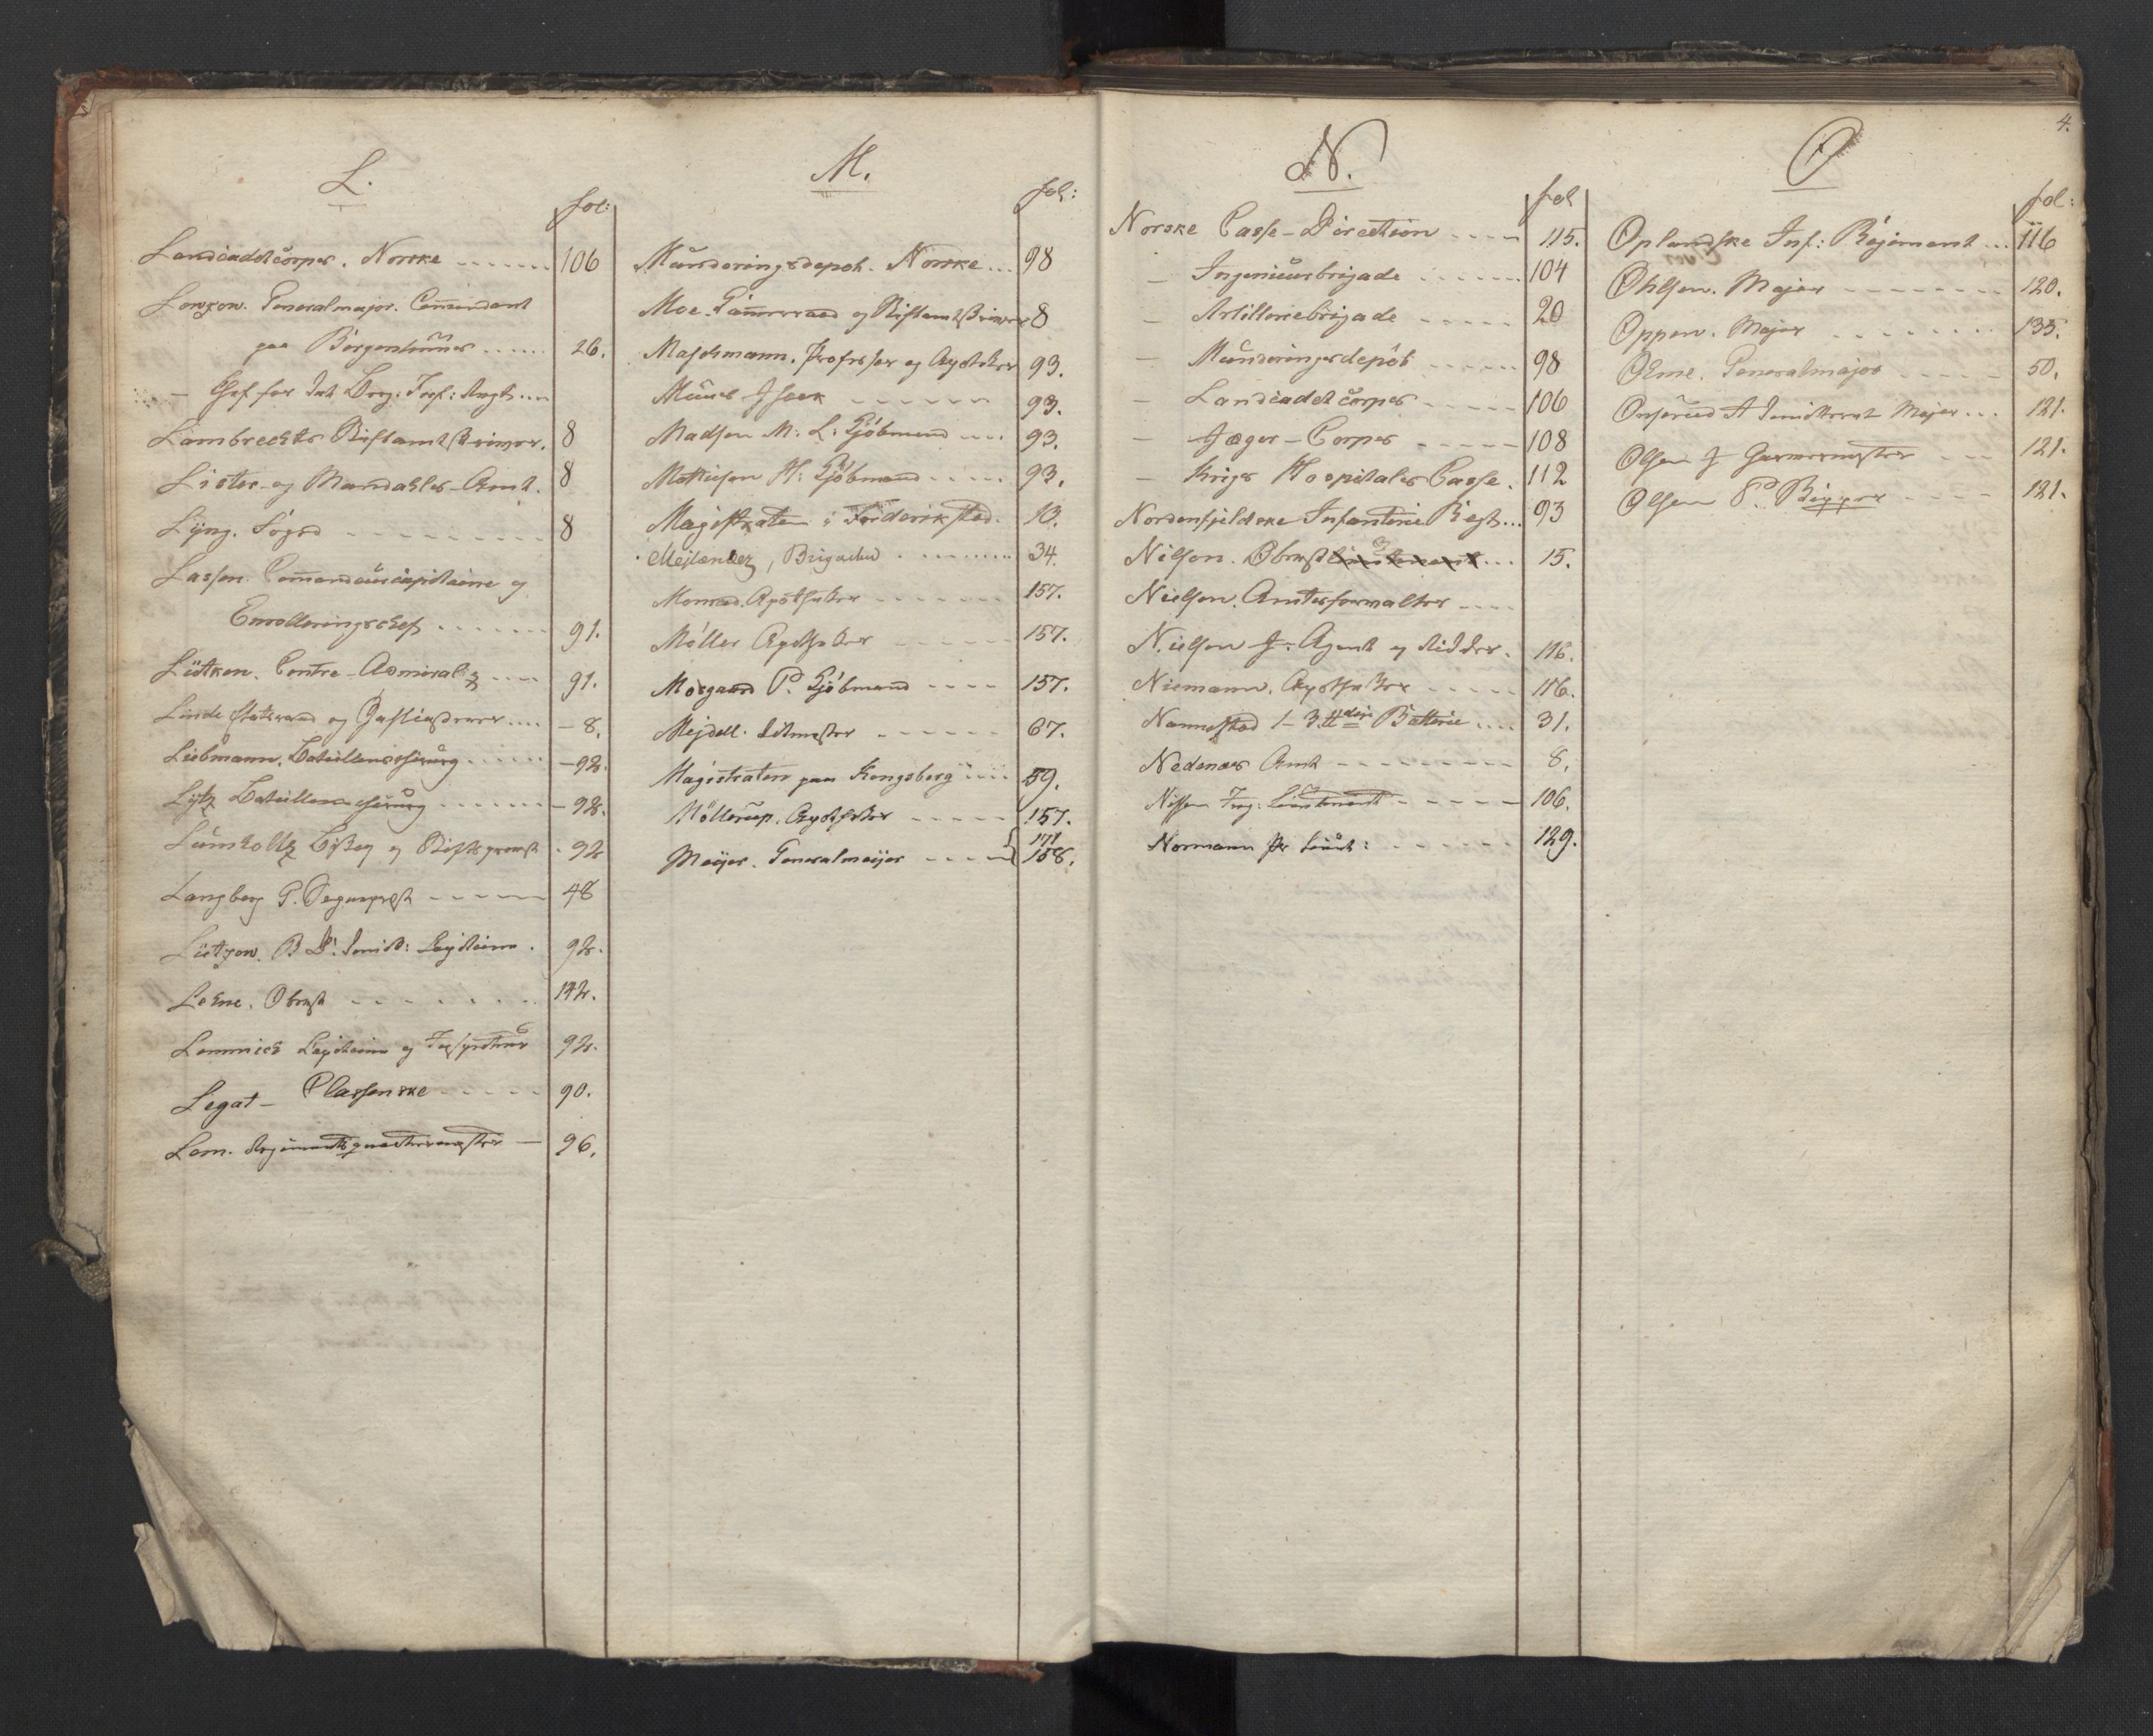 L.
fol:
Landcadetcorpset. Norske 106
Lowzow. Generalmajor. Commendant
paa Bergenhuus 26.
Lambrechts Stiftamtskriver. 8
Lister- og Mandahls-Amt. 8
Lÿng. Foged 8
Lassen. Commandeurcapitaine og
Enrolleringschef 91.
Lütken. Contre-Admiral 91.
Linde Etatsraad og 8.
Liebmann. Batailonschirurg 92.
Lÿtz Batailonschirurg 92.
Lumholtz Biskop og Stiftsprovst 92
Langberg P. Sogneprest 48
Lützow. B D. Capitaine 92.
Lehne. Oberst 142.
Lemmich Capitaine og 92.
Legat- Classenske 90.
Lem. Regimentsqvarteermester 96.
M.
fol:
Munderingsdepot. Norske 98
Moe. Kammerraad og Stiftamtskriver 8
Maschmann. Professor og Apotheker 93.
Muus Isaak 93.
Madsen M: L: Kjöbmand 93.
Mathiesen H: Kjöbmand 93.
Magistraten i Friderikstad. 13.
Mejlænder, Brigadud 34.
Monrad. Apotheker 157.
Möller Apotheker 157.
Morgaard P. Kjöbmand 157.
Mejdell. Ritmester 67.
Magistraten paa Kongsberg 59.
Möllerup. Apotheker 157.
Meijer. Generalmajor 171 158.
N.
fol
Norske Casse-Direction 115.
- Ingenieurbrigade 104
- Artilleriebrigade 20
- Munderingsdepôt 98
- Landcadetcorps 106
- Jæger-Corps 108
- Krigs Hospitals Casse. 112
Nordenfjeldske Infanterie Regt 93
Nilsen. Oberstlieutenant 15.
Nielsen. Amtsforvalter
Nielsen J. Agent og Ridder. 116.
Niemann. Apotheker 116.
Nannestad 1- 3 ₶dige Batterie 31.
Nedenæs Amt 8.
Nissen Ing: Lieutenant 106.
Normann Pr Lieut: 129.
O
4.
fol:
Oplandske Inf: Regiment 116
Ohlsen. Major 120.
Oppen. Major 135.
Ohme. Generalmajor 50.
Major 121.
Olsen J Garvermester 121.
Olsen P. 121.